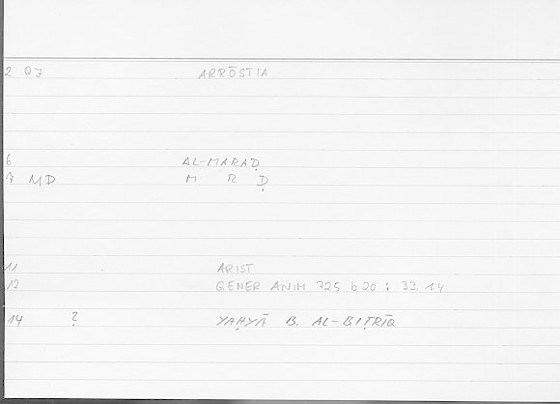 2 QJ ARRŌSTIA
6 AL-MARAḌ
7 M.D M R Ḍ
11 ARIST
12 GENER ANIM 725 b 20 : 33.14
14 ? YAḤYĀ B. AL-BIṬRĪQ